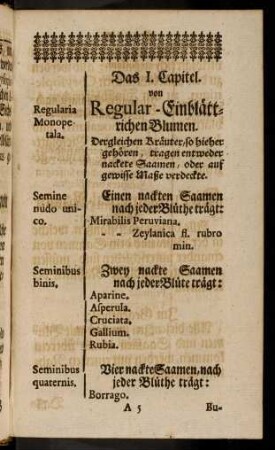 Das I. Capitel.
von
Regular-Einblätt-
richen Blumen.
Regularia
Monope-
tala.
Dergleichen Kräuter/so hieher
gehören, tragen entweder
nackete Saamen, oder auf
gewisse Maße verdeckte.
Semine
nudo uni-
co.
Einen nackten Saamen
nach jeder Blüthe trägt:
Mirabilis Peruviana.
„ „ Zeylanica fl. rubro
min.
Seminibus
binis.
Zwey nackte Saamen
nach jeder Blüte trägt:
Aparine.
Asperula.
Cruciata.
Gallium.
Rubia.
Seminibus
quaternis.
Vier nackte Saamen, nach
jeder Blüthe trägt:
Borrago.
A 5
Bu-